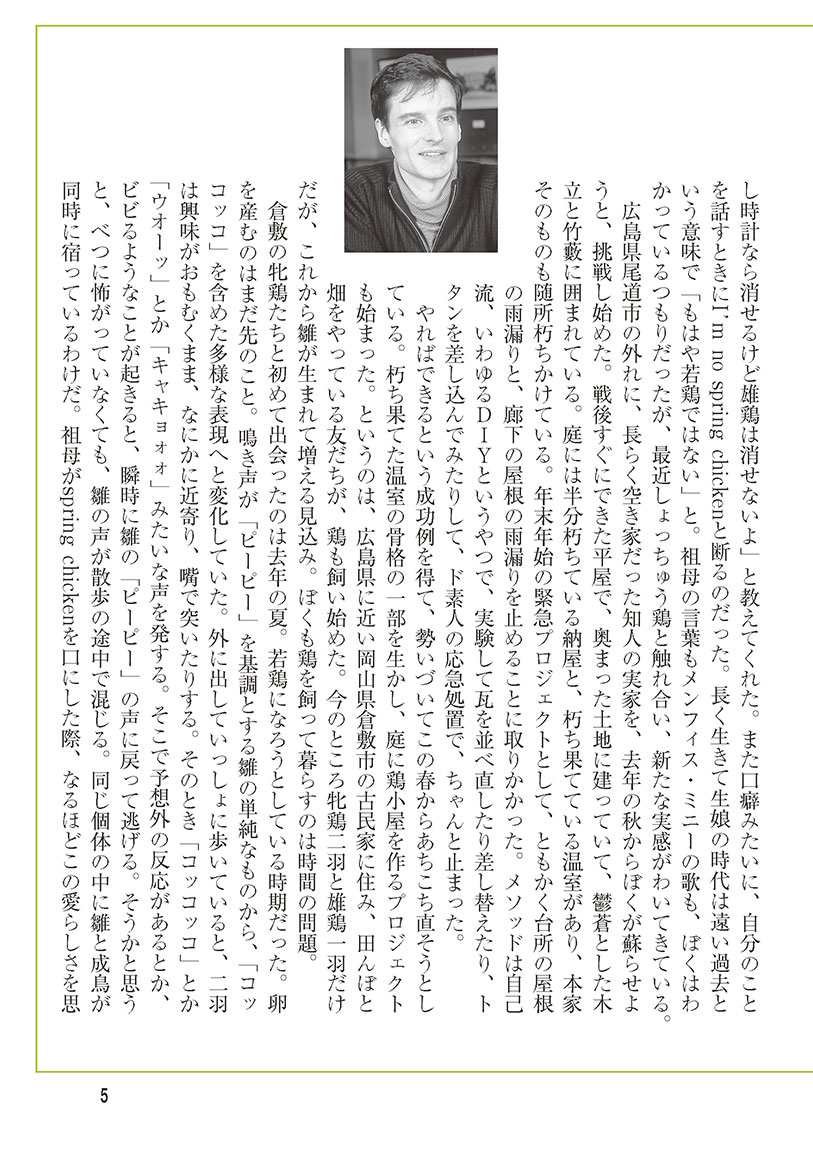 し時計なら消せるけど雄鶏は消せないよ」と教えてくれた。また口癖みたいに、自分のこと
を話すときにI'm no spring chickenと断るのだった。長く生きて生娘の時代は遠い過去と
いう意味で「もはや若鶏ではない」と。祖母の言葉もメンフィス・ミニーの歌も、ぼくはわ
かっているつもりだったが、最近しょっちゅう鶏と触れ合い、新たな実感がわいてきている。
広島県尾道市の外れに、長らく空き家だった知人の実家を、去年の秋からぼくが蘇らせよ
うと、挑戦し始めた。戦後すぐにできた平屋で、奥まった土地に建っていて、鬱蒼とした木
立と竹藪に囲まれている。庭には半分朽ちている納屋と、朽ち果てている温室があり、本家
そのものも随所朽ちかけている。年末年始の緊急プロジェクトとして、ともかく台所の屋根
の雨漏りと、廊下の屋根の雨漏りを止めることに取りかかった。メソッドは自己
流、いわゆるDIYというやつで、実験して瓦を並べ直したり差し替えたり、ト
タンを差し込んでみたりして、ド素人の応急処置で、ちゃんと止まった。
やればできるという成功例を得て、勢いづいてこの春からあちこち直そうとし
ている。朽ち果てた温室の骨格の一部を生かし、庭に鶏小屋を作るプロジェクト
も始まった。というのは、広島県に近い岡山県倉敷市の古民家に住み、田んぼと
畑をやっている友だちが、鶏も飼い始めた。今のところ牝鶏二羽と雄鶏一羽だけ
だが、これから雛が生まれて増える見込み。ぼくも鶏を飼って暮らすのは時間の問題。
倉敷の牝鶏たちと初めて出会ったのは去年の夏。若鶏になろうとしている時期だった。卵
を産むのはまだ先のこと。鳴き声が「ピーピー」を基調とする雛の単純なものから、「コッ
コッコ」を含めた多様な表現へと変化していた。外に出していっしょに歩いていると、二羽
は興味がおもむくまま、なにかに近寄り、嘴で突いたりする。そのとき「コッコッコ」とか
「ウオーッ」とか「キャキョォォ」みたいな声を発する。そこで予想外の反応があるとか、
ビビるようなことが起きると、瞬時に雛の「ピーピー」の声に戻って逃げる。そうかと思う
と、べつに怖がっていなくても、雛の声が散歩の途中で混じる。同じ個体の中に雛と成鳥が
同時に宿っているわけだ。祖母がspring chickenを口にした際、なるほどこの愛らしさを思
5